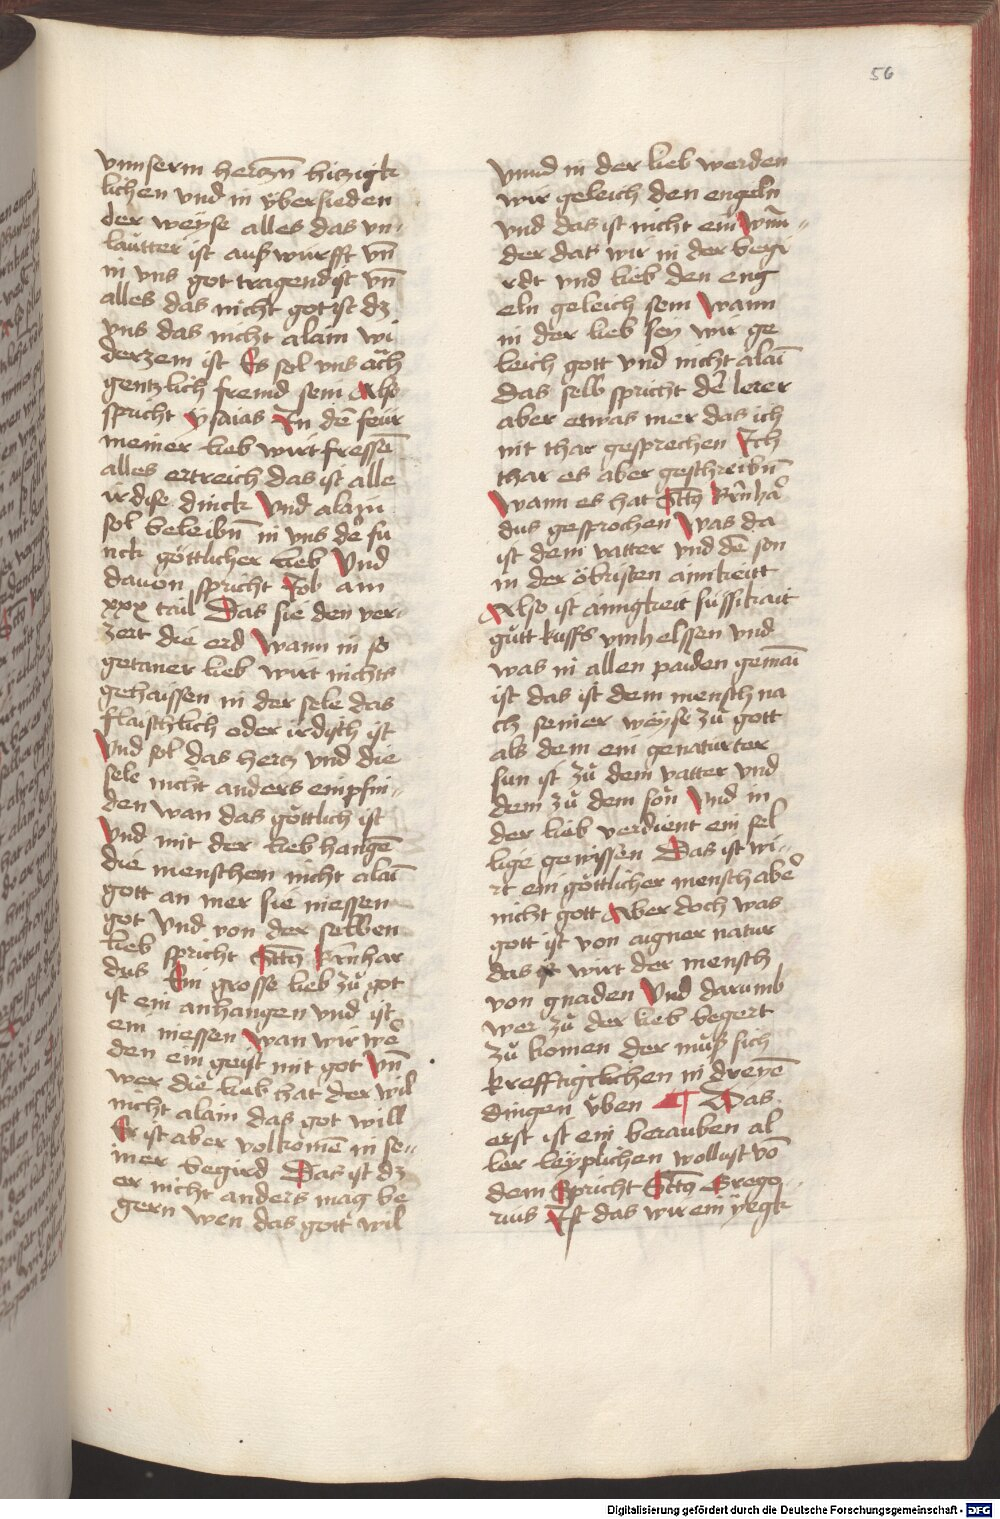 56
vnnserm hertzñ hitzigk
lichen vnd in v̈bersieden
der weyse alles das vn-
lautter ist außwurfft vñ
in vns got tragend ist vñ
alles das nicht got ist dz
vns das nicht alain wi
derzem ist Es sol vns auch
gentzlich fremd sein Also
spricht ysaias In dē feür
meiner lieb wirt fressen
alles ertreich das ist alle
irdise dinck Vnd alain
sol beleibñ in vns der fu
nck göttlicher lieb Vnd
dauon spricht Job am
xxx tail Das sie den ver-
zert die erd Wann in so
getaner lieb wirt nichts
gehaissen in der sele das
flaischlich oder irdisch ist
Vnd sol das hertz vnd die
sele nicht anders empfin-
den wan das göttlich ist
Vnd mit der lieb hangē
die menschen nicht alaī
gott an mer sie niessen
got Vnd von der selben
lieb spricht Sctꝰ Bernhar
dus Ein grosse lieb zů got
ist ein anhangen vnd ist
ein niessen Wan wir we
den ein geist mit got Vñ
wer die lieb hat der wil
nicht alain das got will
Er ist aber volkomē in se-
iner begird Das ist dz
er nicht anders mag be
gern wen das gott wil
Vnnd in der lieb werden
wir geleich den engeln
vnd das ist nicht ein wun-
der das wir in der begi
rdt vnd lieb den eng
eln geleich sein Wann
in der lieb sey wir ge
leich gott vnd nicht alaī
das selb spricht der lerer
aber etwas mer das ich
nit thar gesprechen Ich
thar es aber geschreibñ
Wann es hat Sctꝰ Bernhar
dus gesprochen Was da
ist dem vatter vnd dē son
in der öbristen ainikeitt
Also ist ainigkeit süssikait
gůtt kuss vmhelssen vnd
was in allen paiden gemaī
ist das ist dem mensch na
ch seiner weyse zů gott
als dem ein genaturter
sun ist zů dem vatter vnd
dem zů dem son Vnd in
der lieb verdient ein sel
lige gewissen Das ist wi-
rt ein göttlicher mensch aber
nicht gott Aber doch was
gott ist von aigner natur
das wirt der mensch
von gnaden Vnd darumb
wer zů der lieb begert
zů komen der můß sich
krefftigklichen in dreyē
dingen v̈ben ¶ Das
erst ist ein berauben al
ler leyplichen wollust vō
dem spricht Sctꝰ Grego-
rius Ist das wir ein yegk
Digitalisierung gefördert durch die Deutsche Forschungsgemeinschaft - DFG